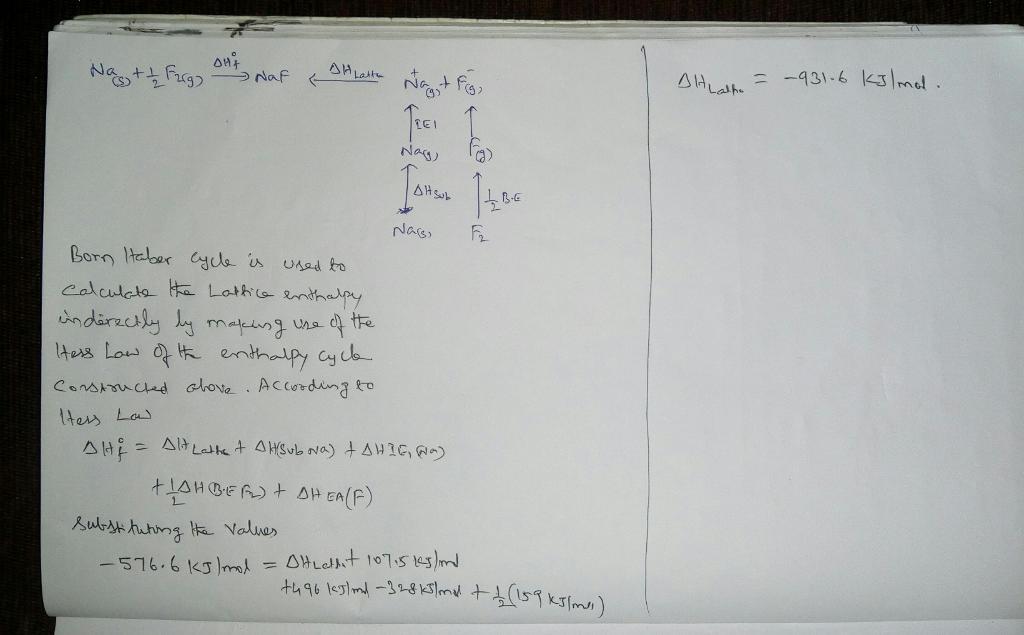 Na(s) + 1/2 F2(g) ΔH°f → NaF ← ΔHLatti Na+(g) + F-(g)
IE1
Na(g) F(g)
ΔHsub 1/2 B.E
Na(s) F2
Born Haber cycle is used to
calculate the Lattice enthalpy
indirectly by making use of the
Hess Law of the enthalpy cycle
constructed above. According to
Hess Law
ΔH°f = ΔHLatti + ΔH(Sub Na) + ΔH IE1 (Na)
+ 1/2 ΔH (B.E F2) + ΔH EA(F)
Substituting the values
-576.6 KJ/mol = ΔHLatti + 107.5 KJ/mol
+496 KJ/mol -328 KJ/mol + 1/2 (159 KJ/mol)
ΔHLatti = -931.6 KJ/mol.